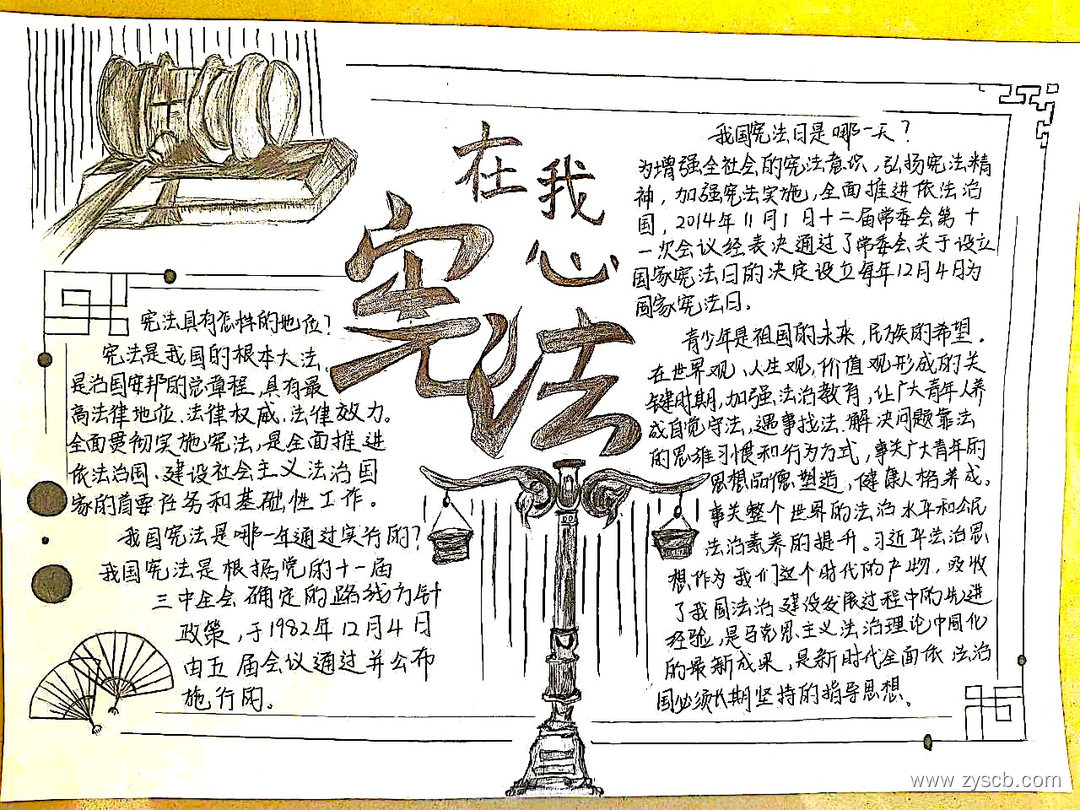 在我心
宪法
宪法具有怎样的地位?
宪法是我国的根本大法,
是治国安邦的总章程,具有最
高法律地位、法律权威、法律效力。
全面贯彻实施宪法,是全面推进
依法治国、建设社会主义法治国
家的首要任务和基础性工作。
我国宪法是哪一年通过实行的?
我国宪法是根据党的十一届
三中全会确定的路线方针
政策,于1982年12月4日
由五届会议通过并公布
施行的。
我国宪法日是哪一天?
为增强全社会的宪法意识,弘扬宪法精
神,加强宪法实施,全面推进依法治
国,2014年11月1日十二届常委会第十
一次会议经表决通过了常委会关于设立
国家宪法日的决定设立每年12月4日为
国家宪法日。
青少年是祖国的未来,民族的希望。
在世界观、人生观,价值观形成的关
键时期,加强法治教育,让广大青年人养
成自觉守法,遇事找法,解决问题靠法
的思维习惯和行为方式,事关广大青年的
思想品德塑造,健康人格养成。
事关整个世界的法治水平和公民
法治素养的提升。习近平法治思
想作为我们这个时代的产物,吸收
了我国法治建设发展过程中的先进
经验,是马克思主义法治理论中国化
的最新成果,是新时代全面依法治
国必须长期坚持的指导思想。
www.zyscb.com